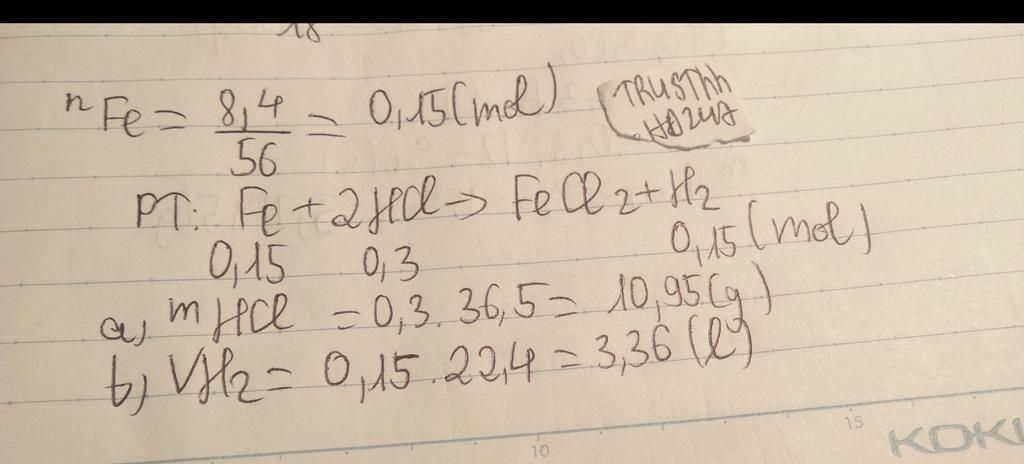 18
nFe = 8,4/56 = 0,15 (mol)
TRUSThh
HD247
PT: Fe + 2HCl → FeCl2 + H2
0,15 0,3 0,15 (mol)
a, mHCl = 0,3. 36,5 = 10,95 (g)
b, VH2 = 0,15 . 22,4 = 3,36 (l)
10
15